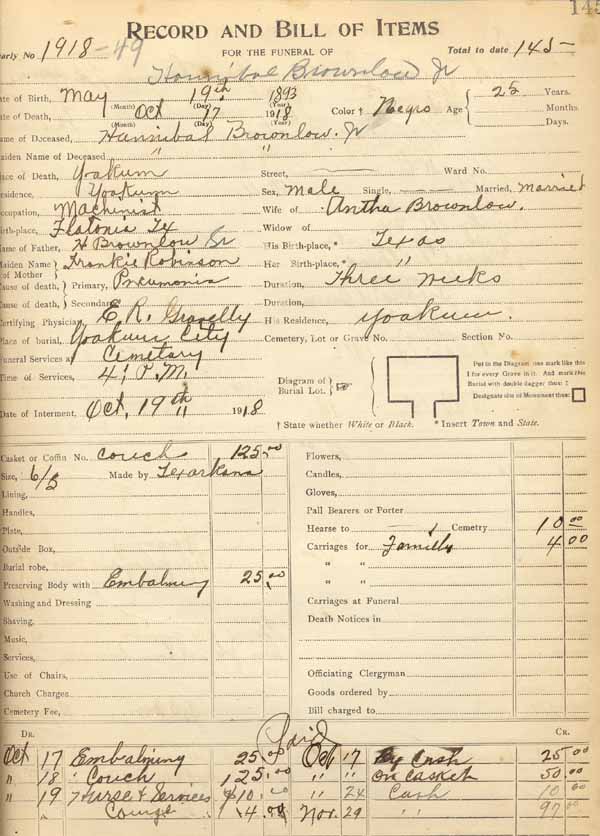 145
RECORD AND BILL OF ITEMS
early No 1918-49 FOR THE FUNERAL OF Total to date 145-
Hannibal Brownlow Jr
ate of Birth, May (Month) 19th (Day) 1893 (Year) Age 25 Years.
ate of Death, Oct (Month) 17 (Day) 1918 (Year) Color † Negro Months
Days.
ame of Deceased, Hannibal Brownlow Jr
aiden Name of Deceased " "
ace of Death, Yoakum Street, Ward No.
esidence, Yoakum Sex, Male Single, Married, Married
ccupation, Machinist Wife of Antha Brownlow.
irth-place, Flatonia Tex Widow of
ame of Father, H Brownlow Sr His Birth-place,* Texas
aiden Name of Mother } Frankie Robinson Her Birth-place,* "
ause of death, } Primary, Pneumonia Duration, Three weeks
ause of death, } Secondary Duration,
ertifying Physician, E. R. His Residence, Yoakum.
lace of burial, Yoakum City Cemetery, Lot or Grave No. Section No.
uneral Services at Cemetary
ime of Services, 4, P.M.
Diagram of Burial Lot. }
Put in the Diagram one mark like this
I for every Grave in it. And mark this
Burial with double dagger thus: ‡
Designate site of Monument thus:
Date of Interment, Oct, 19th " 1918
† State whether White or Black. * Insert Town and State.
Casket or Coffin No. couch 125.00 Flowers,
Size, 6/3 Made by Texarkana Candles,
Lining, Gloves,
Handles, Pall Bearers or Porter
Plate, Hearse to Cemetry 10 00
Outside Box, Carriages for Family 4 00
Burial robe, " "
Preserving Body with Embalming 25.00 " "
Washing and Dressing Carriages at Funeral
Shaving, Death Notices in
Music,
Services,
Use of Chairs, Officiating Clergyman
Church Charges Goods ordered by
Cemetery Fee, Bill charged to
DR. Paid CR.
Oct 17 Embalming 25 00 Oct 17 By Cash 25 00
" 18 " Couch 125.00 " " on casket 50.00
" 19 Hurse & Services $10.00 " 24 Cash 10 00
" 4.00 Nov. 29 " " 97 00